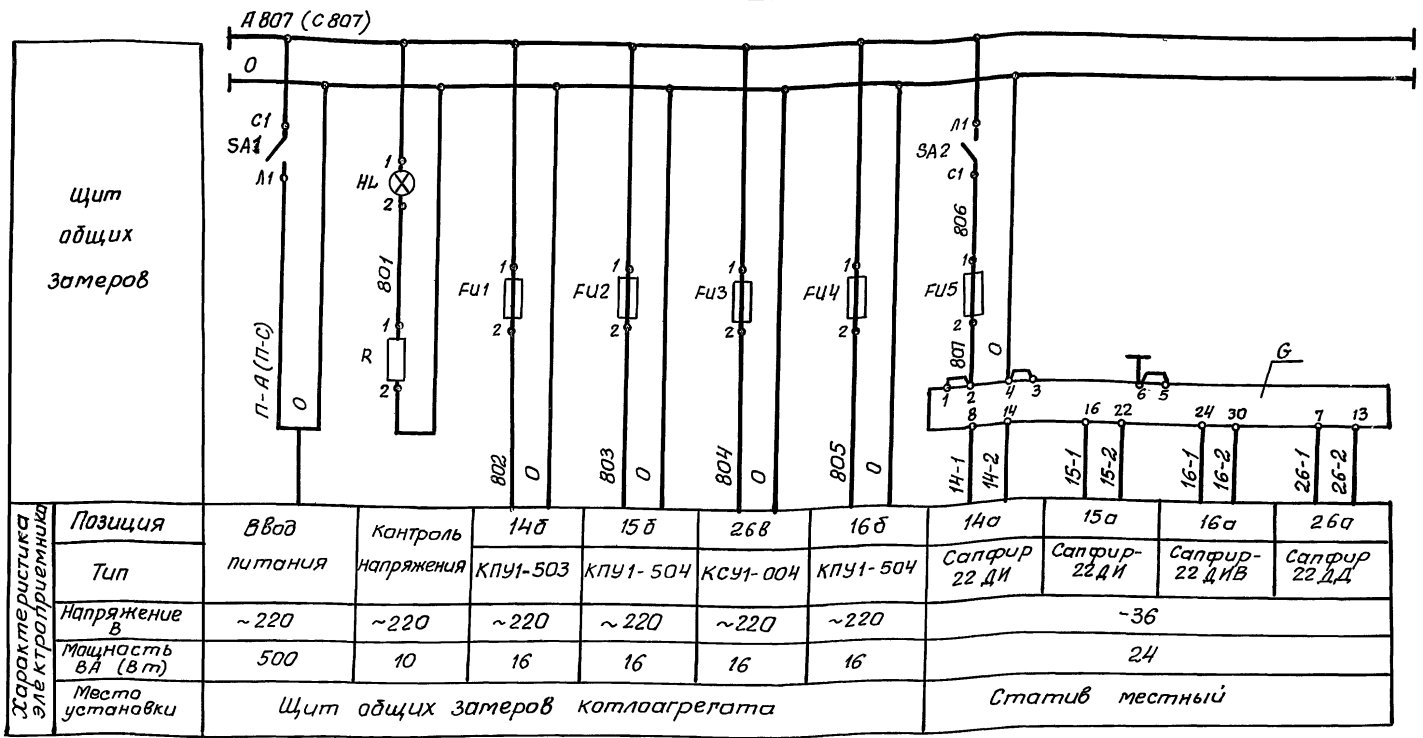 А807 (С807)
0
Щит
общих
замеров
С1
SA1
Л1
П-А (П-С)
0
1
HL
2
801
1
R
2
1
FU1
2
802
0
1
FU2
2
803
0
1
FU3
2
804
0
1
FU4
2
805
0
Л1
SA2
С1
806
1
FU5
2
807
0
G
1
2
4
3
6
5
8
14
16
22
24
30
7
13
14-1
14-2
15-1
15-2
16-1
16-2
26-1
26-2
Характеристика
электроприемника
Позиция
Ввод
питания
Контроль
напряжения
14б
15б
26в
16б
14а
15а
16а
26а
Тип
КПУ1-503
КПУ1-504
КСУ1-004
КПУ1-504
Сапфир
22 ДИ
Сапфир-
22 ДИ
Сапфир-
22 ДИВ
Сапфир
22 ДД
Напряжение
В
~220
~220
~220
~220
~220
~220
-36
Мощность
ВА (Вт)
500
10
16
16
16
16
24
Место
установки
Щит общих замеров котлоагрегата
Статив местный